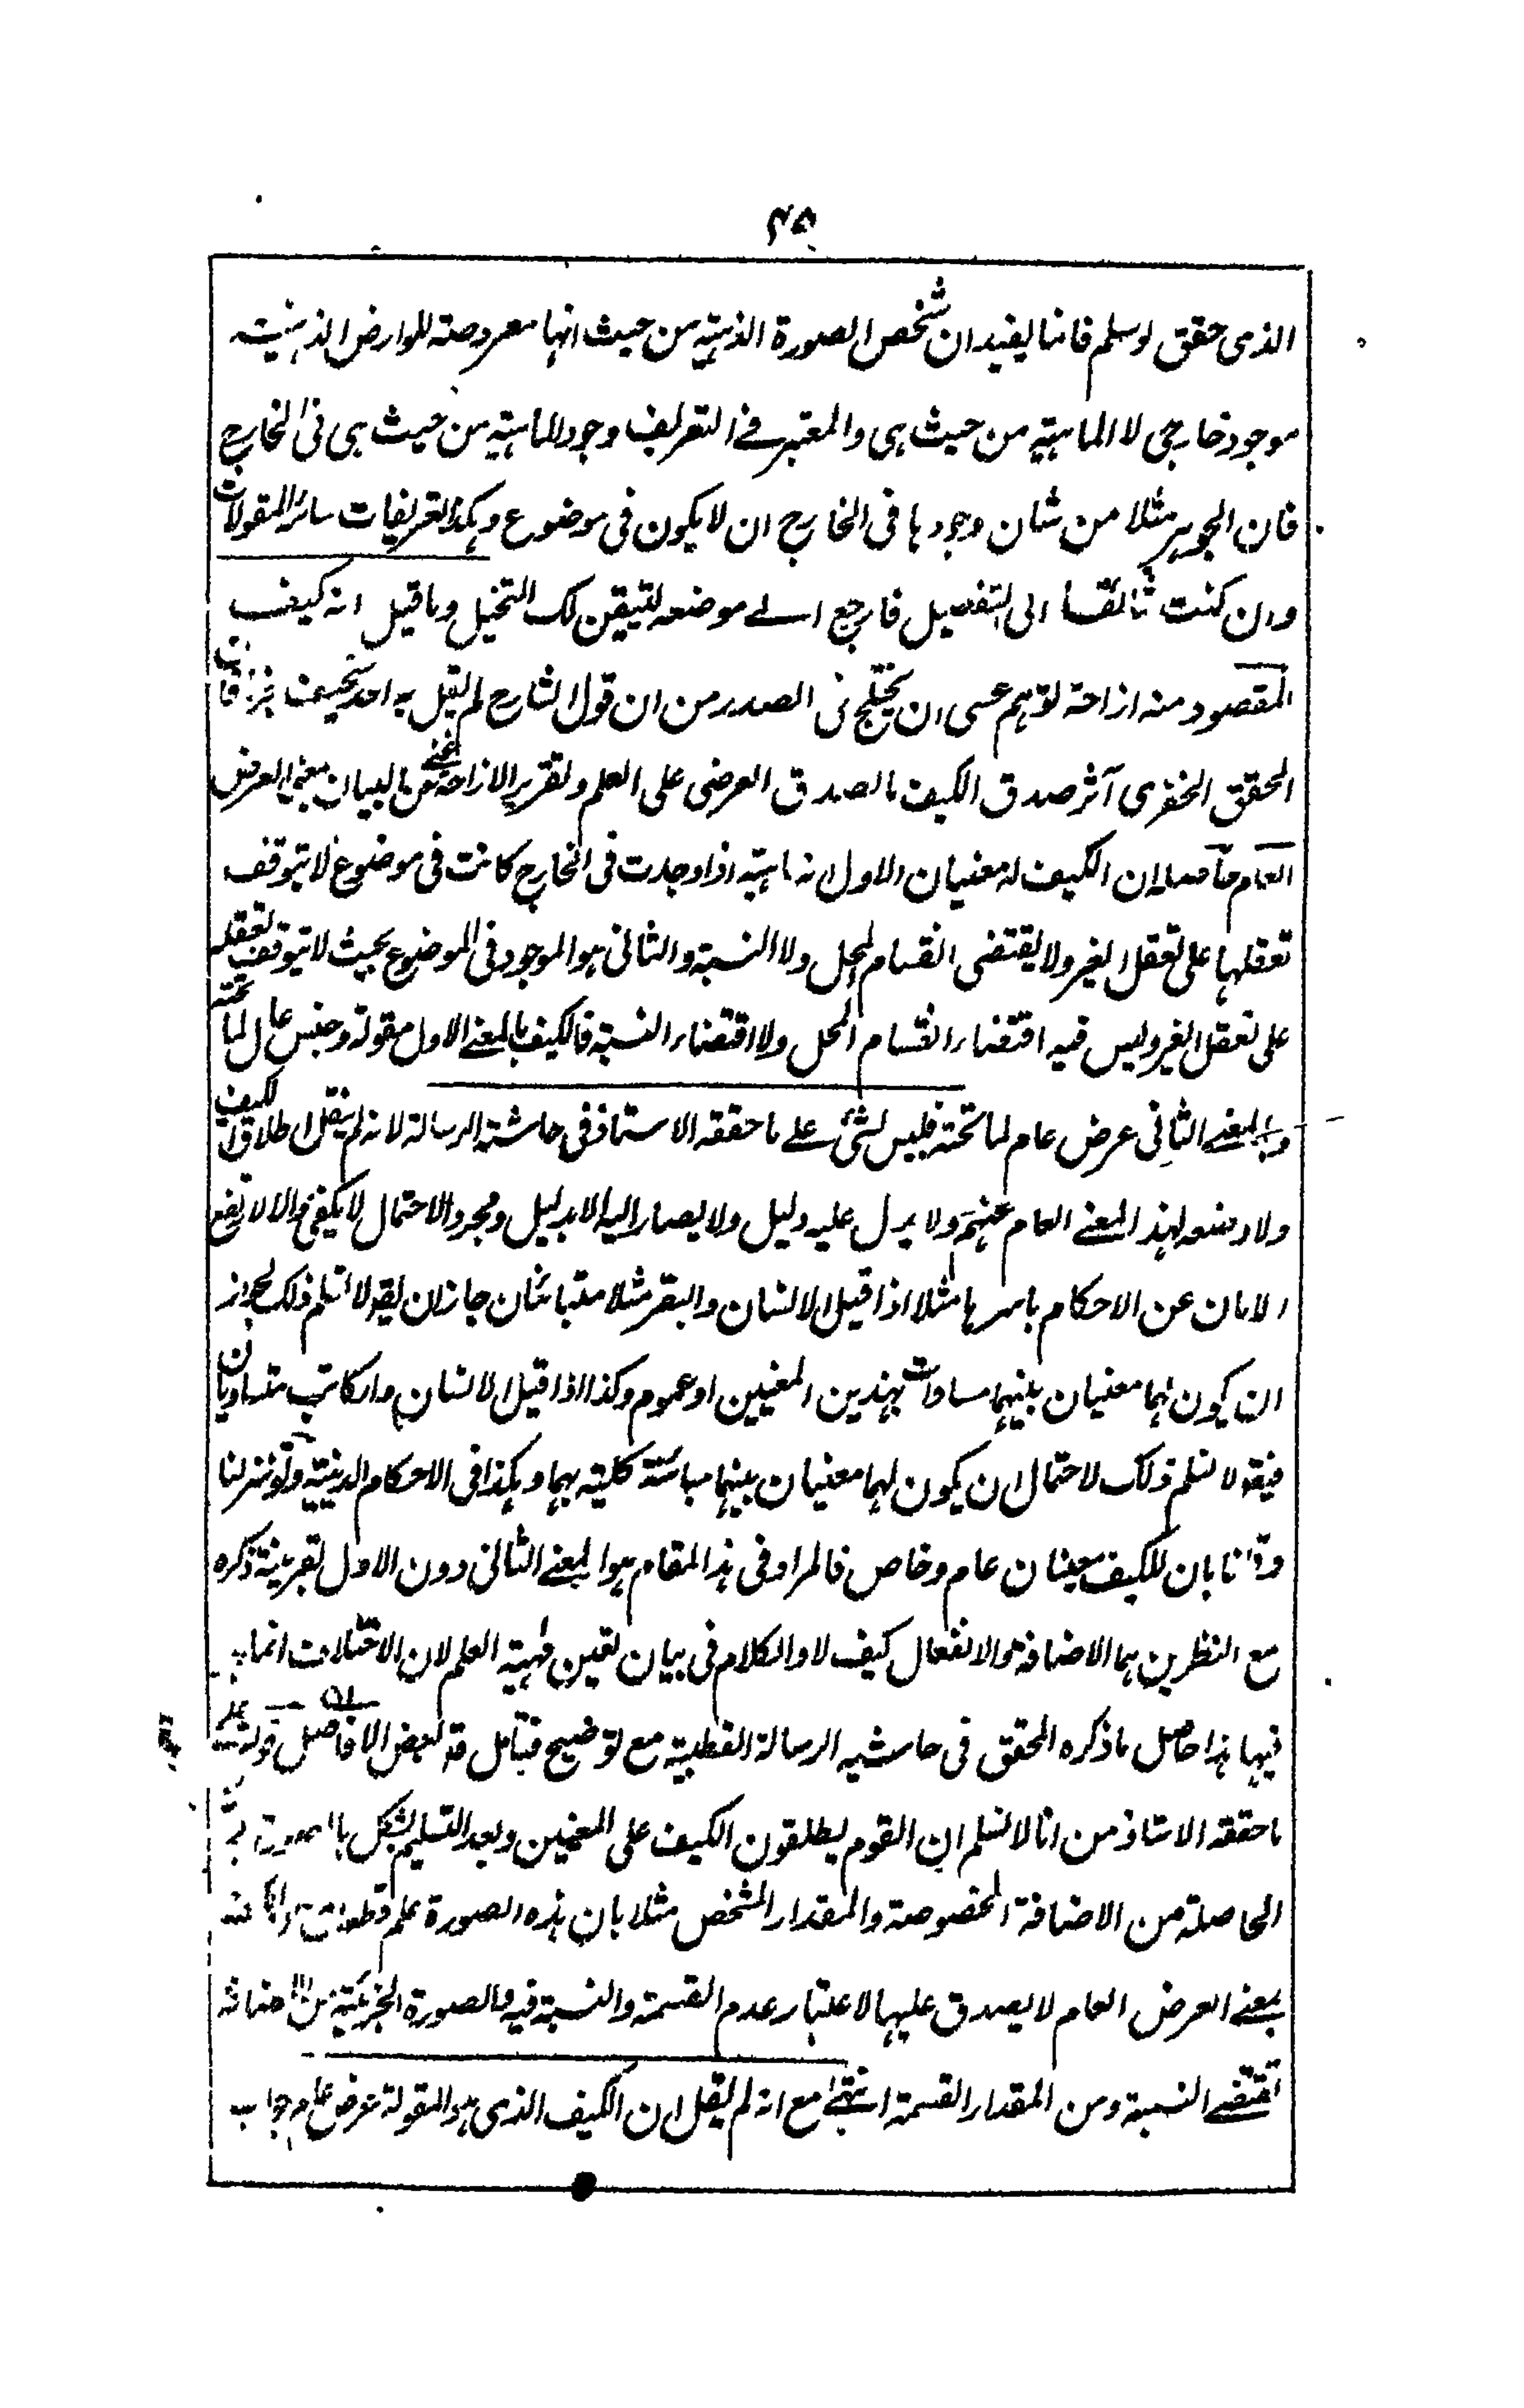 ۴۵
الذي حقق لو سلم فانما يفيد ان شخص الصورة الذهنية من حيث انها معروضة للعوارض الذهنية
موجود خارجي لا الماهية من حيث هي والمعتبر في التعريف وجود الماهية من حيث هي في الخارج
فان الجوهر مثلا من شان وجودها في الخارج ان لا يكون في موضوع وهكذا تعريفات سائر المقولات
وان كنت شائقا الى التفصيل فارجع الى موضعه لتيقن لك التخيل وما قيل انه كيف
المقصود منه ازاحة توهم عسى ان يختلج في الصدر من ان قول الشارح لم يقل به احد سخيف فان
المحقق الخفري آثر صدق الكيف بالصدق العرضي على العلم وتقرير الازاحة غني عن البيان بمعنى العرض
العام حاصله ان الكيف له معنيان الاول انه ماهية اذا وجدت في الخارج كانت في موضوع لا يتوقف
تعقلها على تعقل الغير ولا يقتضي انقسام المحل ولا النسبة والثاني هو الموجود في الموضوع بحيث لا يتوقف تعقله
على تعقل الغير وليس فيه اقتضاء انقسام المحل ولا اقتضاء النسبة فالكيف بالمعنى الاول مقولة وجنس عال لما تحته
وبالمعنى الثاني عرض عام لما تحته فليس بشئ على ما حققه الاستاذ في حاشية الرسالة لانه لم ينقل اطلاق الكيف
ولا وضعه لهذا المعنى العام عنهم ولا يدل عليه دليل ولا يصار اليه الا بدليل ومجرد الاحتمال لا يكفي والا لارتفع
الامان عن الاحكام باسرها مثلا اذا قيل الانسان والبقر مثلا متبائنان جاز ان يقول لا نسلم ذلك لجواز
ان يكون لهما معنيان بينهما مساوات بهذين المعنيين او عموم وكذا اذا قيل الانسان والكاتب متساويان
فيقول لا نسلم ذلك لاحتمال ان يكون لهما معنيان بينهما مبائنة كلية بهما وهكذا في الاحكام الدينية ولو تنزلنا
وقلنا بان للكيف معنيان عام وخاص فالمراد في هذا المقام هو المعنى الثاني دون الاول بقرينة ذكره
مع النظرين هما الاضافة والانفعال كيف لا والكلام في بيان تعين مهية العلم لان الاختلاف انما
فيها هذا حاصل ما ذكره المحقق في حاشيه الرسالة القطبية مع توضيح فتامل قد لبعض الافاضل قوله
ما حققه الاستاذ من انا لا نسلم ان القوم يطلقون الكيف على المعنيين وبعد التسليم يشكل بالصورة
الحاصلة من الاضافة المخصوصة والمقدار المشخص مثلا بان هذه الصورة علم قطعا مع ان الكيف
بمعنى العرض العام لا يصدق عليها لاعتبار عدم القسمة والنسبة فيه والصورة الجزئية من الاضافة
تقتضي النسبة ومن المقدار القسمة انتهى مع انه لم يقل ان الكيف الذي هو المقولة عرض عام